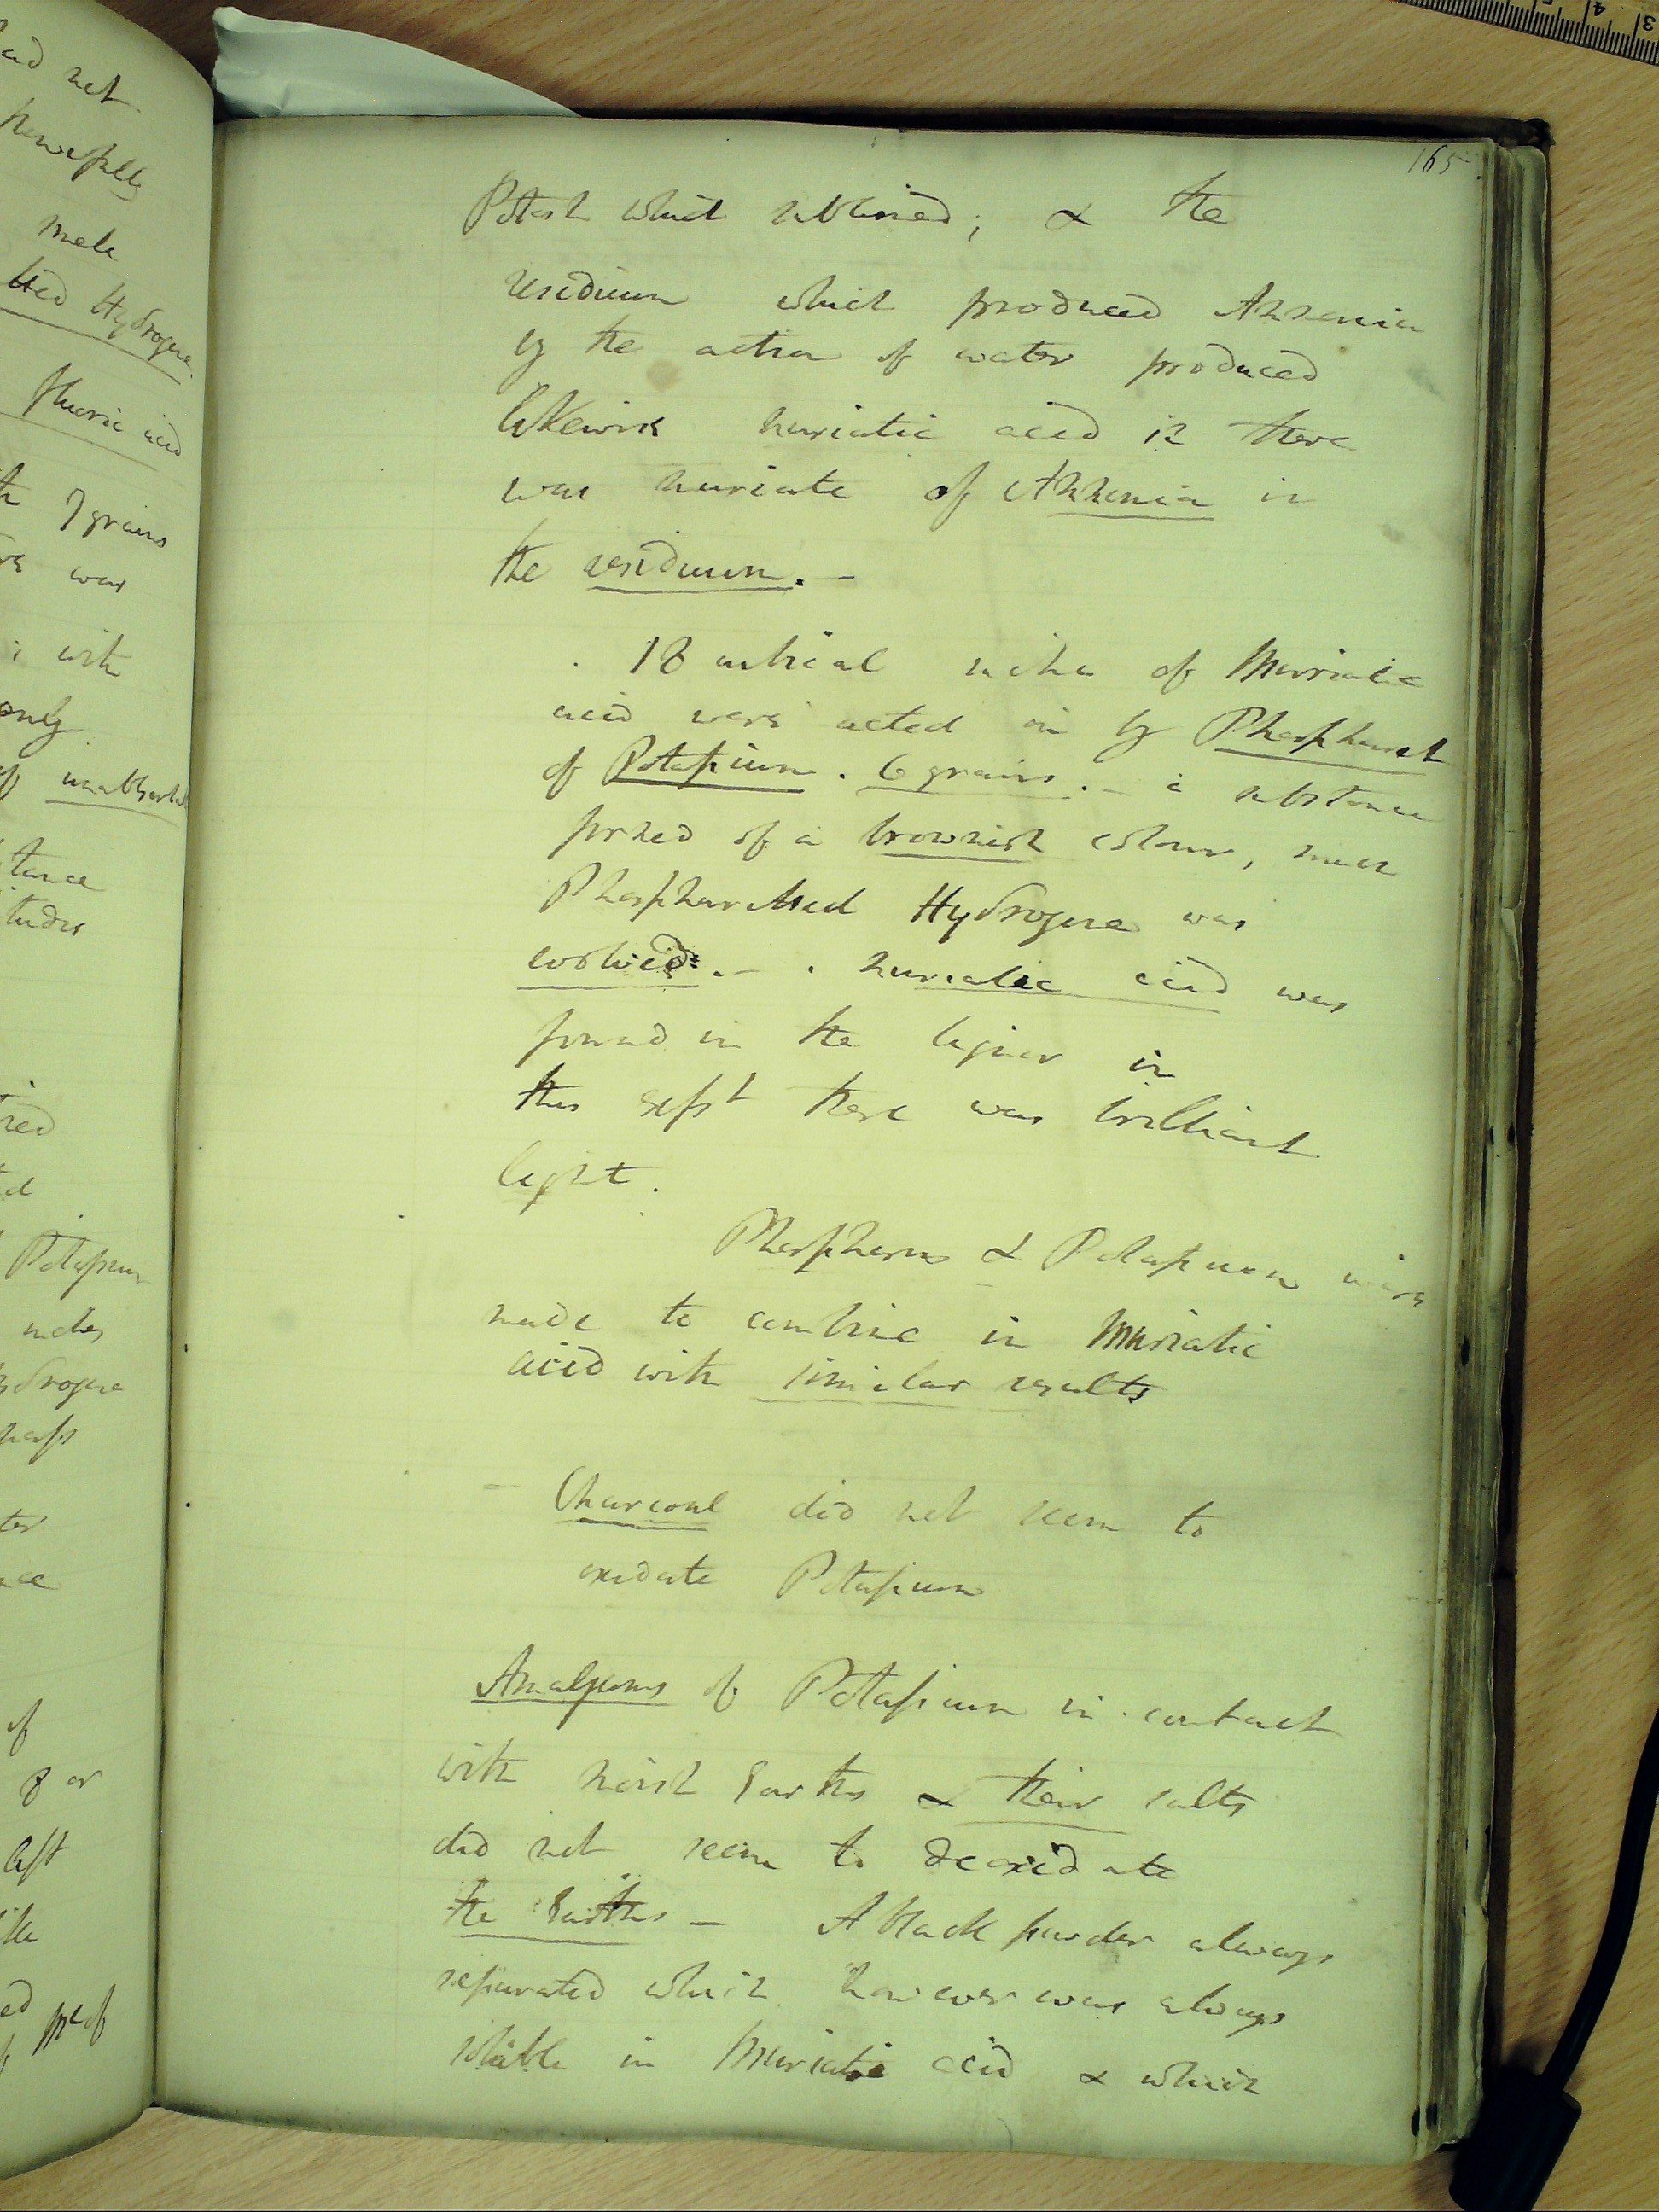 had not
powerfully
mele
tted Hydrogene.
fluoric acid
7 grains
was
with
only
of unabsorbd
tance
tudes
Potasium
inches
ydrogene
mass
ter
of
8 or
left
165
Potash which sublimed; & the
residuum which produced Ammonia
by the action of water produced
likewise muriatic acid ie there
was muriate of Ammonia in
the residuum. -
18 cubical inches of Muriatic
acid were acted on by Phosphuret
of Potasium. 6 grains. - a substance
formed of a brownish colour, much
Phosphuretted Hydrogene was
evolved. - muriatic acid was
found in the liquor in
this expt there was brilliant
light.
Phosphorus & Potasium were
made to combine in Muriatic
acid with similar results
- Charcoal did not seem to
oxidate Potasium
Amalgams of Potasium in contact
with moist Earths & their salts
did not seem to deoxidate
the Earths - A black powder always
separated which however was always
soluble in Muriatic acid & which
3 4 5